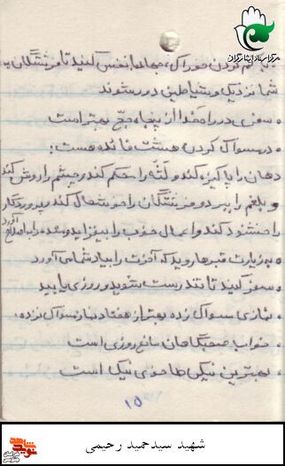 مرکز اسناد ایثارگران
کم کردن خوراک، جهاد با نفس کنید تا فرشتگان به
شما نزدیک و شیاطین دور شوند
• سفری در راه خدا از پنجاه حج بهتر است
• در مسواک کردن هشت فائده هست:
دهان را پاکیزه کند و لثه را محکم کند و چشم را روشن کند
و بلغم را ببرد و فرشتگان را خوشحال کند و پروردگار
را خشنود کند و اعمال خوب را بیفزاید و معده را به اصلاح آورد
• به زیارت قبرها روید که آخرت را بیاد شما می آورد
• سفر کنید تا تندرست شوید و روزی یابید
• نمازی مسواک زده بهتر از هفتاد نماز مسواک نزده،
• خواب صبحگاهان مانع روزی است
• بهترین نیکی ها خوی نیک است
۱۵
شهید سیدحمید رحیمی
نوید شاهد